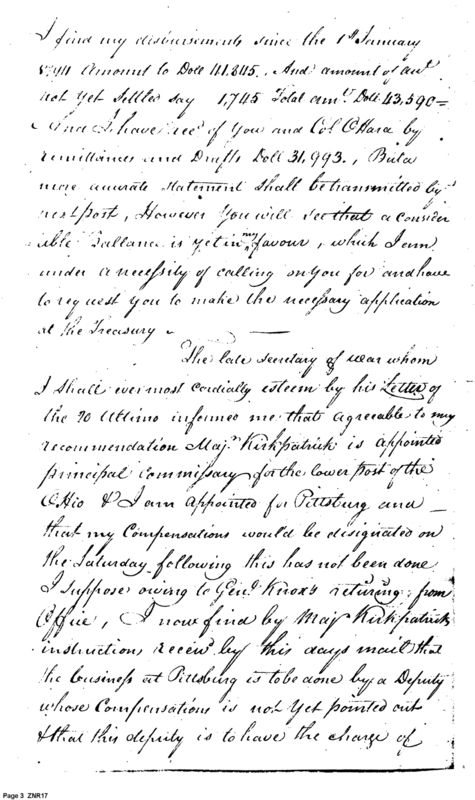 I find my disbursements since the 1st January
1794 Amount to Doll 41,845. And amount of acct
not yet Settled say 1,745 Total amt. Doll 43,590=
And I have recd of You and Col OHara by
remittances and Drafts Doll 31,993., But a
more acurate statement Shall be transmitted by
next post, However You will see that a consider
able Ballance is yet in my favour, which I am
under a necessity of calling on You for and have
to request You to make the necessary application
at the Treasury.
The late Secretary of war whom
I shall ever most cordially esteem by his Letter of
the 20 Ultimo informed me that agreeable to my
recommendation Majr Kirkpatrick is appointed
principal Commissary for the lower post of the
OHio & I am appointed for Pittsburg and
that my Compensations would be designated on
the Saturday following this has not been done
I suppose owing to Genl Knox's returing from
Office, I now find by Maj Kirkpatricks
instructions receivd by this days mail that
the business at Pittsburg is to be done by a Deputy
whose Compensations is not Yet pointed out
& that this deputy is to have the charge of
Page 3 ZNR17